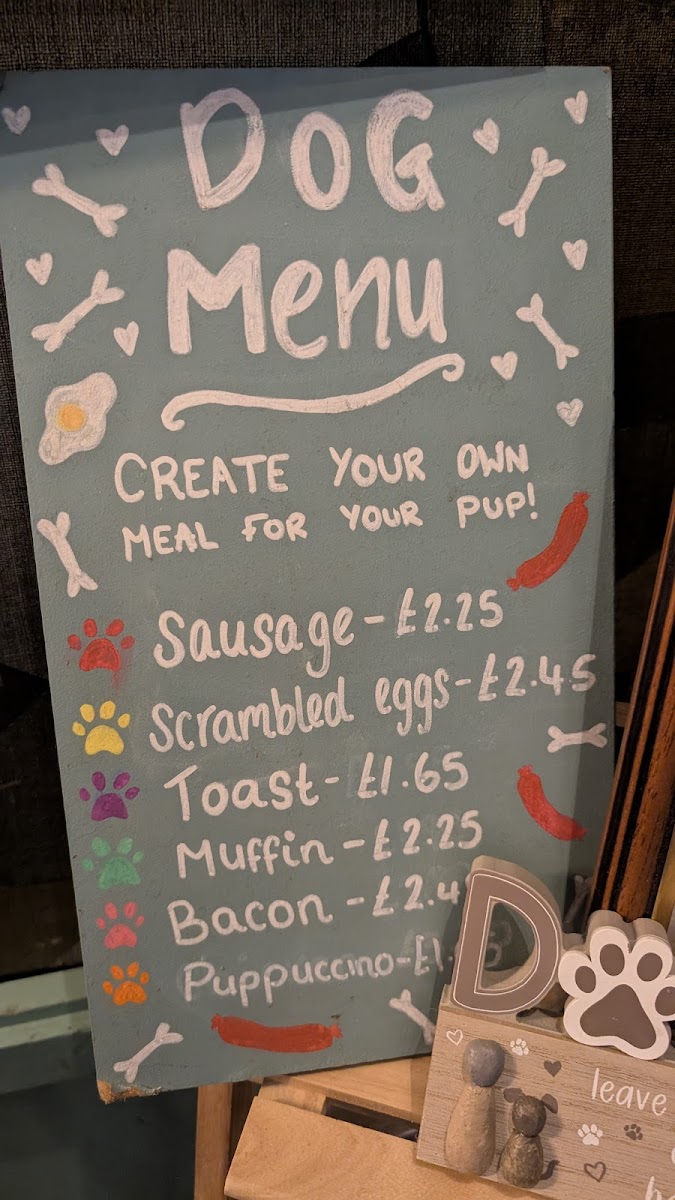 DOG
Menu
CREATE YOUR OWN
MEAL FOR YOUR PUP!
Sausage - £2.25
Scrambled eggs - £2.45
Toast - £1.65
Muffin - £2.25
Bacon -
Puppuccino -
D
leave